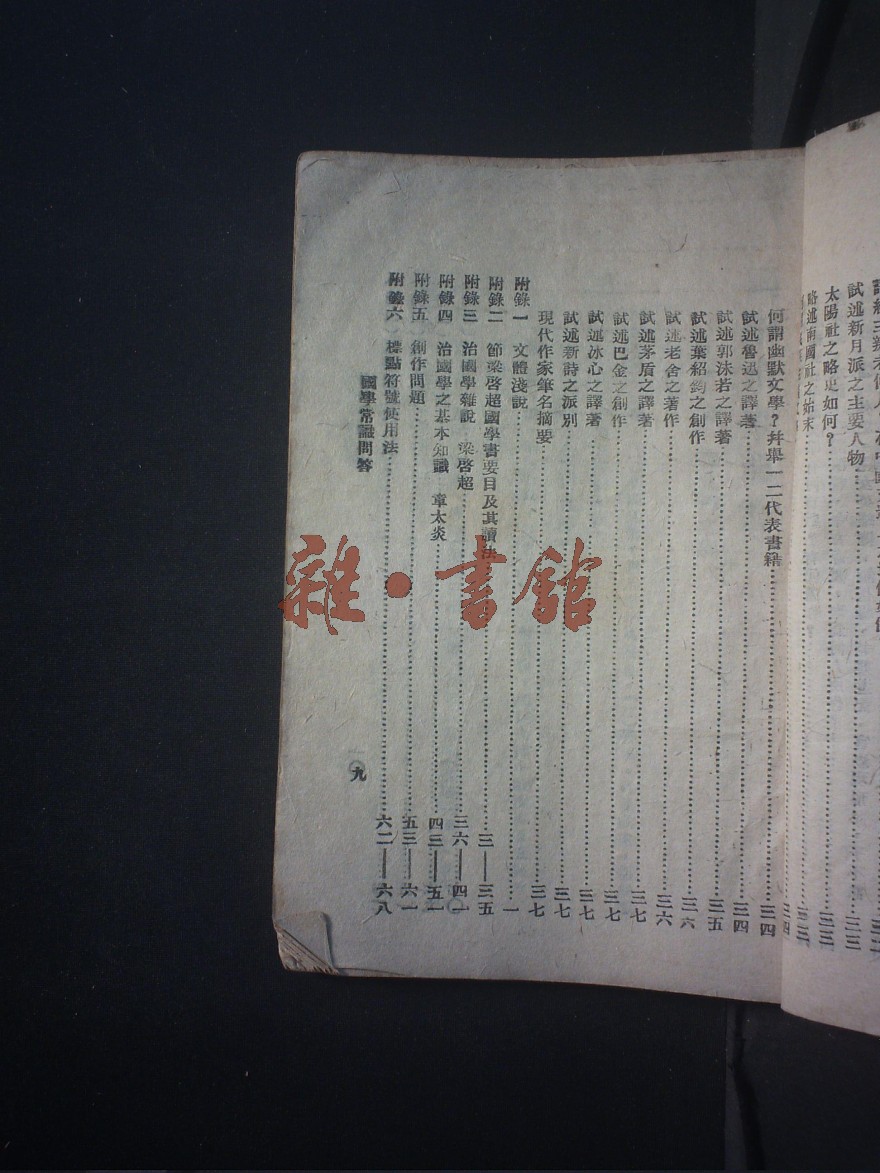 試述新月派之主要人物……三三
太陽社之略史如何？……三三
略述南國社之始末……三三
何謂幽默文學？并舉一二代表書籍……三四
試述魯迅之譯著……三四
試述郭沫若之譯著……三五
試述葉紹鈞之創作……三六
試述老舍之著作……三六
試述茅盾之譯著……三七
試述巴金之創作……三七
試述冰心之譯著……三七
試述新詩之派別……三七
現代作家筆名摘要……三七
附錄一 文體淺說……一
附錄二 節梁啓超國學書要目及其讀法……三——三五
附錄三 治國學雜說 梁啓超……三六——四一
附錄四 治國學之基本知識 章太炎……四三——五一
附錄五 創作問題……五三——六一
附錄六 標點符號使用法……六二——六八
國學常識問答
九
雜·書館